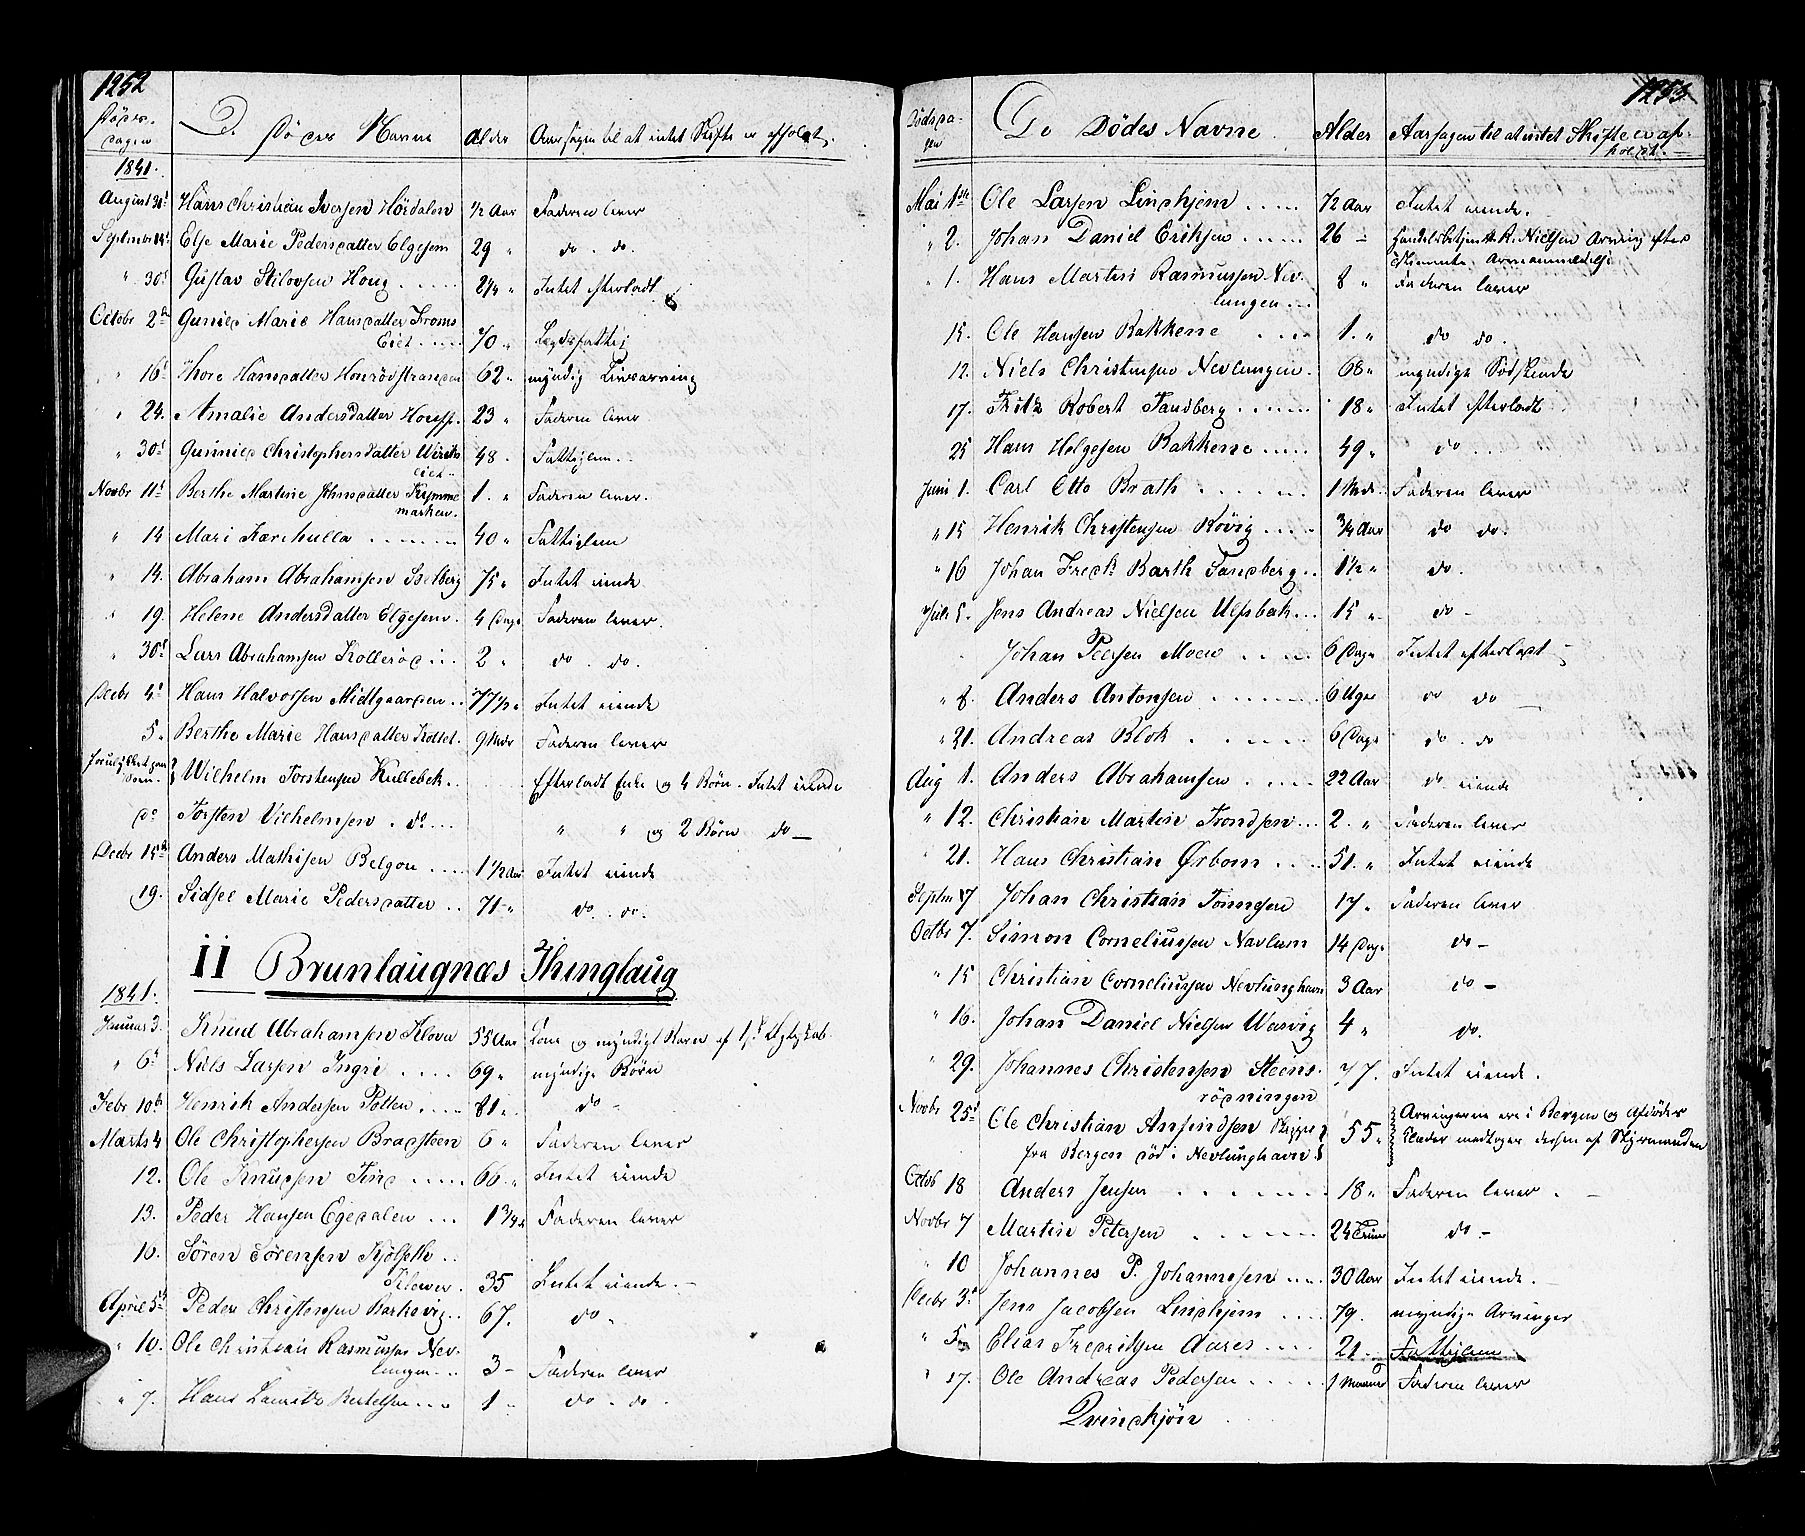 1252
Døds-
dagen
De Dødes Navne
Alder
Aarsagen til at intet Skifte er afholdt.
1841.
August 31t Hans Christian Iversen Hørdalen 1/2 Aar Faderen lever
Septmr 14d Else Marie Pedersdatter Elgesem 29 " do. do.
" 30d Gustav Skilovsen Houg 2 1/4 " Intet efterladt
Octobr 2den Gunild Marie Hansdatter Kroms
Eiet 70 " Legdsfattig
" 16d Thore Hansdatter Homrødstranden 62 " myndig Livsarving
" 24. Amalie Andersdatter Houff. 23 " Faderen lever
" 30d Gunnild Christophersdatter Wiriks
eiet 48 . Fattiglem.
Novbr 11d Berthe Martine Johnsdatter Krømme
marken. 1. " Faderen lever.
" 14 Mari Karihulla 40 " Fattiglem
" 14. Abraham Abrahamsen Sselberg 75 " Intet eiende
" 19. Helene Andersdatter Elgesem. 4 Dage Faderen lever.
" 30d Lars Abrahamsen Kollerød 2 " do. do.
Decbr 4d Hans Halvorsen Midtgaarden 77 1/2 " Intet eiende
5 " Berthe Marie Hansdatter Holtet. 9 Mdr Faderen lever
Wilhelm Torstensen Kullebek. Efterladt Enke og 4 Børn. Intet eiende
do Torsten Vilhelmsen . do. " " og 2 Børn do —
Decbr 15d Anders Mathisen Belgon 1 1/2 Aar Intet eiende
19. Sidsel Marie Pedersdatter 71 " do. do.
II Brunlaugnæs Thinglaug
1841.
Januar 3. Knud Abrahamsen Klova 55 Aar Kone og myndigt Barn af 1ste Ægteskab.
" 6d Niels Larsen Ingri 69 " myndige Børn
Febr 10de Henrik Andersen Polten 81 " do -
Marts 4 Ole Christophersen Bradsteen 6 " Faderen lever
12. Ole Knudsen Tind 66 " Intet eiende
13. Peder Hansen Egedalen 1 3/4 " Faderen lever
10. Søren Sørensen Kjølseth
Klover. 35 Intet eiende. -
April 5d Peder Christensen Barkevig 67. do "
" 10. Ole Christian Rasmussen Nev-
lungen 3 - Faderen lever
" 7. Hans Lauritz Bertelsen 1 " do. do.
1253
Dødsda-
gen
De Dødes Navne
Alder
Aarsagen til at intet Skifte er af-
holdt.
Mai 1ste Ole Larsen Lindhjem 72 Aar Intet eiende.
" 2. Johan Daniel Eriksen 26 - Handelsbetjent A. R. Nielsen Arving efter
Armanmeldelse
" 1. Hans Martin Rasmussen Nev-
lungen 8 " Faderen lever
15. Ole Hansen Bakkene 1. " do do.
12. Niels Christensen Nevlungen. 68 " myndige Sødskende
17. Fritz Robert Sandberg 18 " Intet efterladt
25 Hans Helgesen Bakkene 49 " do
Juni 1. Carl Otto Brath 1 Md. Faderen lever
" 15 Henrik Christensen Røvig 3/4 Aar do do.
" 16 Johan Fredk Barth Sandberg 1 1/2 " do.
Juli 5. Jens Andreas Nielsen Ulfsbak 15 " do -
Johan Pedersen Moen 6 Dage Intet efterladt
" 8. Anders Antonsen 6 Uger do do —
" 21. Andreas Blok 6 Dage do. do
Aug 1. Anders Abrahamsen 22 Aar do eiende
" 12. Christian Martin Trondsen 2. " Faderen lever
" 21. Hans Christian Ørbom 51. " Intet eiende
Septm 17 Johan Christian Tønnesen 17 " Faderen lever
Octbr 7. Simon Corneliussen Navlum 14 Dage do -
" 15 Christian Corneliussen Nevlunghavn 3 Aar do -
" 16. Johan Daniel Nielsen Wasvig 4 " do.
" 29. Johannes Christensen Steens-
rødningen 77. Intet eiende.
Novbr 25d Ole Christian Amundsen Skipper
fra Bergen død i Nevlunghavn 55 " Arvingerne ere i Bergen og Afdødes
Klæder modtoges dersen af Styrmanden
Octbr 18 Anders Jensen 18 " Faderen lever . -
Novbr 7 Martin Petersen 24 Timer do -
" 10 Johannes P. Johannesen 30 Aar Intet eiende.
Decbr 3d Jens Jacobsen Lindhjem 79. myndige Arvinger
" 5 Elias Fredriksen Aares 21. Fattiglem
" 17. Ole Andreas Pedersen 1 Maaned Faderen lever
Qvindkjøn